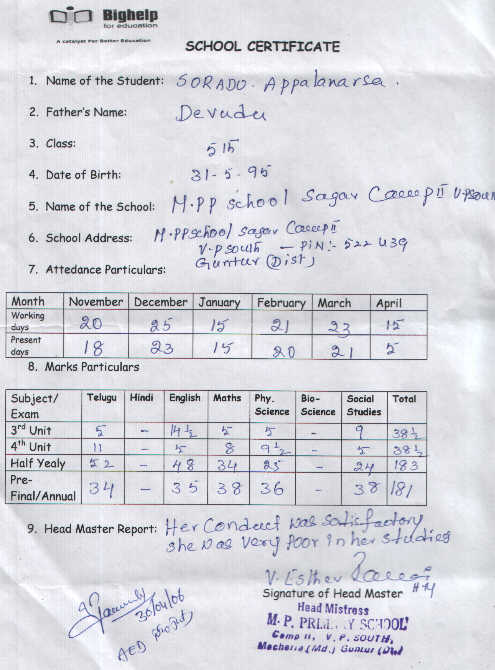 Bighelp
for education
A catalyst For Better Education
SCHOOL CERTIFICATE
1. Name of the Student: SORADU. Appalanarsa.
2. Father's Name: Devudu
3. Class: 5th
4. Date of Birth: 31-5-95
5. Name of the School: M.PP School Sagar Camp II V.P South
6. School Address: M.PP School Sagar Camp II
V.P South - PIN:- 522 439
Guntur (Dist)
7. Attedance Particulars:
Month November December January February March April
Working days 20 25 15 21 23 15
Present days 18 23 15 20 21 5
8. Marks Particulars
Subject/ Exam Telugu Hindi English Maths Phy. Science Bio-Science Social Studies Total
3rd Unit 5 - 14½ 5 5 - 9 38½
4th Unit 11 - 5 8 9½ - 5 38½
Half Yealy 52 - 48 34 25 - 24 183
Pre-Final/Annual 34 - 35 38 36 - 38 181
9. Head Master Report: Her Conduct was Satisfactory
she was very poor in her studies
V. Esther
Signature of Head Master
Head Mistress
M. P. PRIMARY SCHOOL
Camp II, V. P. SOUTH,
Macherla (Md.) Guntur (Dt)
30/04/06
AED